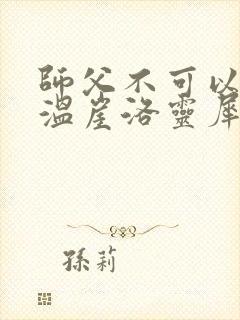 師父不可以
溫崖洛靈犀
孫莉